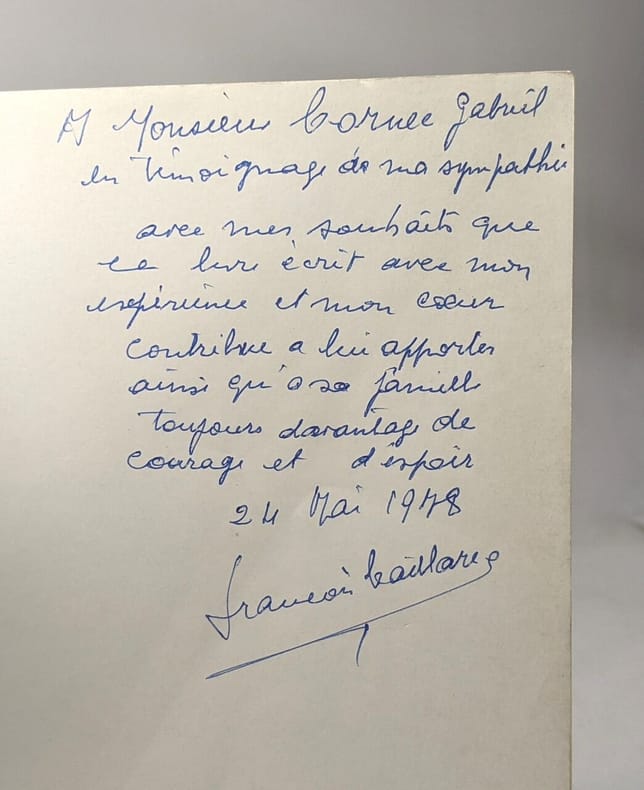 A Monsieur Cornec Gabriel
en témoignage de ma sympathie
avec mes souhaits que
ce livre écrit avec mon
expérience et mon cœur
contribue a lui apporter
ainsi qu'a sa famille
toujours davantage de
courage et d'espoir
24 Mai 1978
François